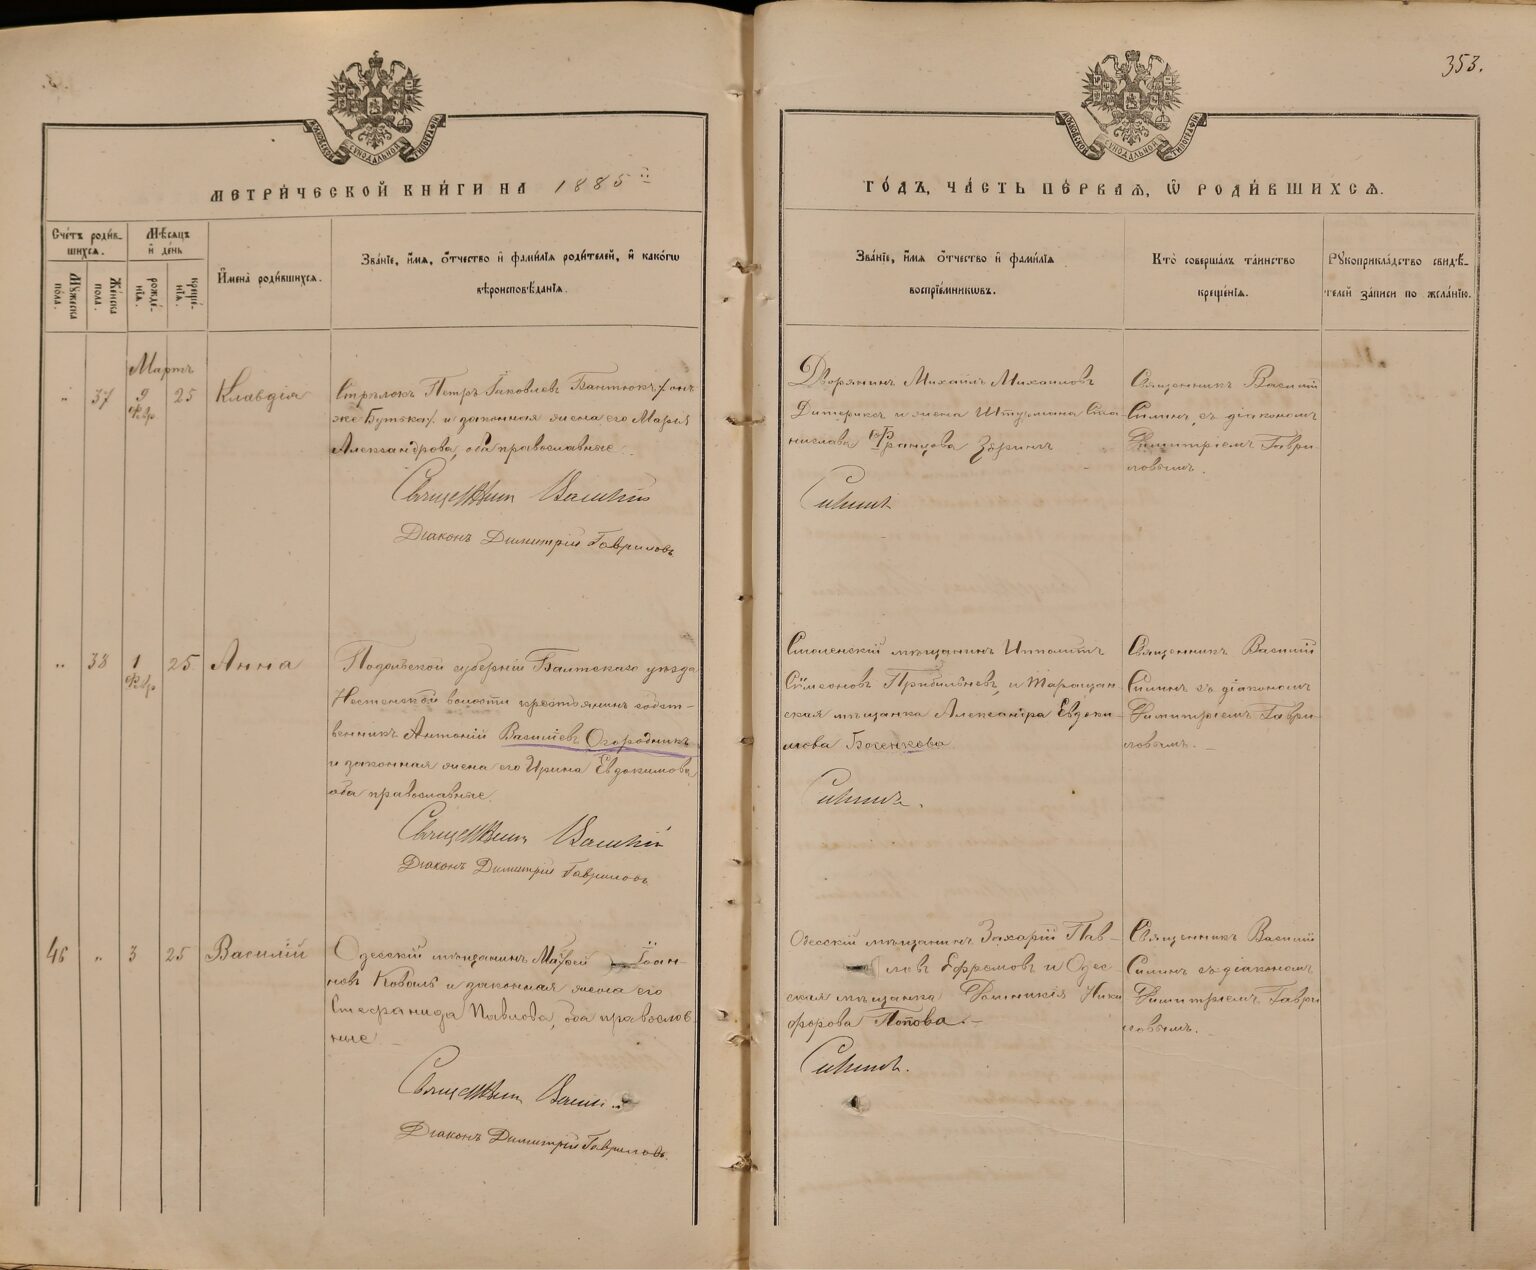 353.
МОСКОВСКОЙ СѴНОДАЛЬНОЙ ТИПОГРАФІИ
МОСКОВСКОЙ СѴНОДАЛЬНОЙ ТИПОГРАФІИ
МЕТРИ́ЧЕСКОЙ КНИ́ГИ НА 1885й
ГО́ДЪ, ЧА́СТЬ ПЕ́РВАѦ, Ѿ РОДИ́ВШИХСѦ.
Сче́тъ роди́в-
шихсѧ.
Мꙋжеска по́ла.
Же́нска пола.
Мѣсѧцъ
и҆ де́нь
рожде́-
нїѧ.
креще́-
нїѧ.
И҆мена̀ роди́вшихсѧ.
Зва́нїе, и҆́мѧ, ѻ҆́тчество и҆ фами́лїѧ роди́телей, и҆ како́гѡ
вѣроисповѣ́данїѧ.
Зва́нїе, и҆́мѧ ѻ҆́тчество и҆ фами́лїѧ
воспрїе́мникѡвъ.
Кто̀ соверша́лъ та́инство
креще́нїѧ.
Рꙋкоприкла́дство свидѣ́-
телей за́писи по жела́нїю.
Мартъ
" 37 9 25 Клавдія
Фвр
Стрѣлокъ Петръ Іаковлевъ Бантюкъ /онъ
же Бутька/ и законная жена его Марія
Александрова, оба православные
Священникъ Василій
Діаконъ Димитрій Гавриловъ
Дворянинъ Михаилъ Михаиловъ
Дитерихсъ и жена Штурмана Ста
нислава Францова Зѣринъ
Силинъ
Священникъ Василій
Силинъ съ діакономъ
Димитріемъ Гаври-
ловымъ.
" 38 1 25 Анна
Фвр
Подольской губерніи Балтскаго уѣзда
Нестоитской волости крестьянинъ собст-
венникъ Антоній Василіевъ Огородникъ
и законная жена его Ирина Евдокимова
оба православные.
Священникъ Василій
Діаконъ Димитрій Гавриловъ
Смоленскій мѣщанинъ Ипполитъ
Сѵмеоновъ Прибильневъ, и Таращан-
ская мѣщанка Александра Евдоки-
мова Боженкова
Силинъ.
Священникъ Василій
Силинъ съ діакономъ
Димитріемъ Гаври-
ловымъ. –
46 " 3 25 Василій
Одесскій мѣщанинъ Матѳей Іоан-
новъ Коваль и законная жена его
Стефанида Павлова, оба православ-
ные. –
Священникъ Васил
Діаконъ Димитрій Гавриловъ.
Одесскій мѣщанинъ Захарій Пав-
ловъ Ефремовъ и Одес-
ская мѣщанка Домникія Ники
форова Попова. –
Силинъ.
Священникъ Василій
Силинъ съ діакономъ
Димитріемъ Гаври
ловымъ.